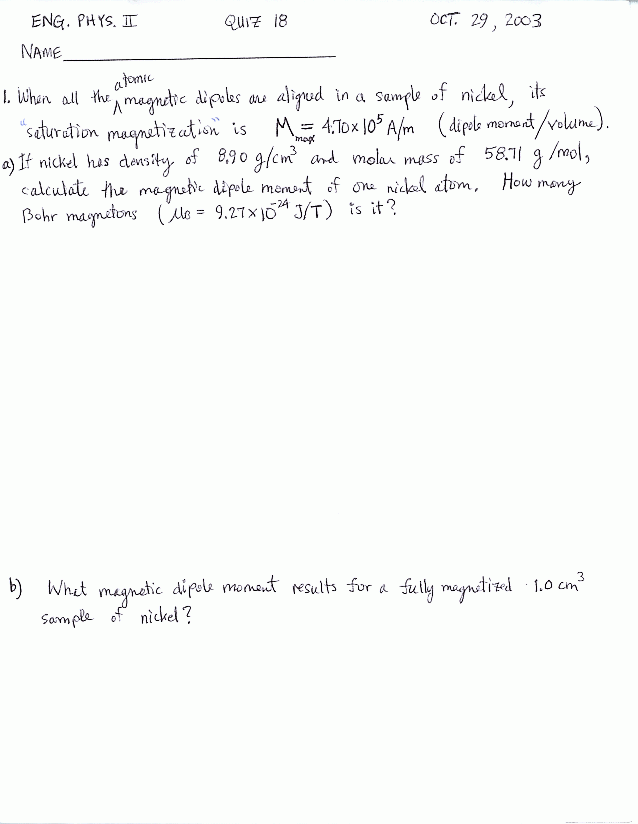 ENG. PHYS. II QUIZ 18 OCT. 29, 2003
NAME
1. When all the atomic magnetic dipoles are aligned in a sample of nickel, its
"saturation magnetization" is M_max = 4.70×10⁵ A/m (dipole moment/volume).
a) If nickel has density of 8.90 g/cm³ and molar mass of 58.71 g/mol,
calculate the magnetic dipole moment of one nickel atom. How many
Bohr magnetons (μ_B = 9.27×10⁻²⁴ J/T) is it?
b) What magnetic dipole moment results for a fully magnetized 1.0 cm³
sample of nickel?